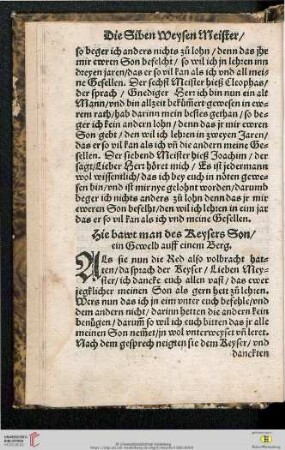 Die Siben Weysen Meister/
so beger ich anders nichts zů lohn/denn das jhr
mir ewren Son befelcht/so wil ich jn lehren inn
dreyen jaren/das er so vil kan als ich vnd all mei-
ne Gesellen. Der sechst Meister hieß Cleophas/
der sprach/Gnediger Herr ich bin nun ein alt
Mann/vnd bin allzeit bekům̃ert gewesen in ew-
rem rath/hab darinn mein bestes gethan/so be-
ger ich kein andern lohn/denn das jr mir ewren
Son gebt/den wil ich lehren in zweyen Jaren/
das er so vil kan als ich vñ die andern meine Ge-
sellen. Der siebend Meister hieß Joachim/der
sagt/Lieber Herr hört mich/Es ist jedermann
wol wissentlich/das ich bey euch in nöten gewe-
sen bin/vnd ist mir nye gelohnt worden/darumb
beger ich nichts anders zů lohn denn das jr mir
eweren Son befelht/den wil ich lehren in eim jar
das er so vil kan als ich vnd meine Gesellen.
Hie bawt man des Keysers Son/
ein Gewelb auff einem Berg.
ALs sie nun die Red also volbracht hat-
ten/da sprach der Keyser/Lieben Mey-
ster/ich dancke euch allen vast/das ewer
jegklicher meinen Son als gern hett zů lehren.
Wers nun das ich jn eim vnter euch befehle/vnd
dem andern nicht/darinn hetten die andern kein
benügen/darum̃ so wil ich euch bitten das jr alle
meinen Son nem̃et/jn wol vnterweyset vñ leret.
Nach dem gesprech neigten sie dem Keyser/vnd
danckten